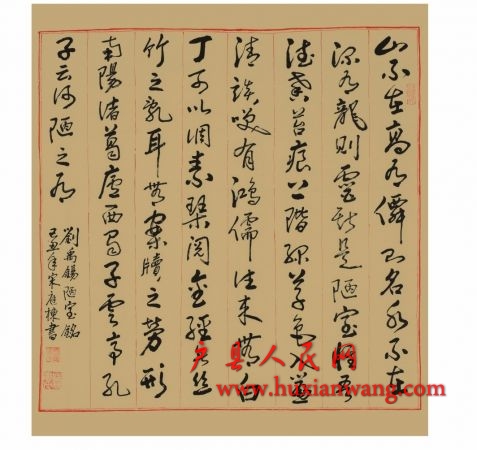 山不在高有僊則名水不在
深有龍則靈斯是陋室惟吾
德馨苔痕上階綠草色入簾
清談咲有鴻儒往来無白
丁可以調素琴閱金經無絲
竹之亂耳無案牘之勞形
南陽諸葛廬西蜀子雲亭孔
子云何陋之有
劉禹錫陋室銘
己丑年宋庭棟書
户县人民网
www.huxianwang.com